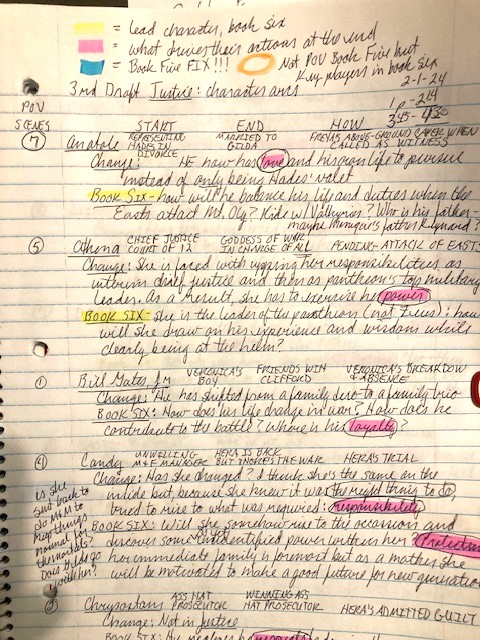 = lead character, book six
= what drives their actions at the end
= Book Five FIX!!! Not POV Book Five but
Key players in book six
2-1-24
3rd Draft Justice: character arcs
POV
SCENES START END HOW
7 Anatole REPRESENTING HADES IN DIVORCE MARRIED TO GILDA FREYA'S ABOVE-GROUND CAPER WHEN CALLED AS WITNESS
Change: He now has love and his own life to pursue
instead of only being Hades' valet
Book Six - how will he balance his life and duties when the
Easts attack Mt. Oly? Ride w/ Valkyries? Who is his father -
maybe father
5 Athena CHIEF JUSTICE COURT OF 12 GODDESS OF WAR IN CHARGE OF ALL PENDING ATTACK OF EASTS
Change: She is faced with her responsibilities as
interim chief justice and then as pantheon's top military
leader. As a result, she has to exercise her power
BOOK SIX - she is the leader of the pantheon (not Zeus): how
will she draw on his experience and wisdom while
clearly being at the helm?
1 Bill Gates, Jr VERONICA'S BOY FRIENDS WITH CLIFFORD VERONICA'S BREAKDOWN & ABSENCE
Change: He has shifted from a family duo to a family trio
BOOK SIX: How does his life change in war? How does he
contribute to the battle? Where is his loyalty?
4 Candy UNWILLING M&F MANAGER HERA IS BACK BUT THERE'S THE WAR HERA'S TRIAL
Change: Has she changed? I think she's the same on the
inside but because she knew it was the right thing to do,
tried to rise to what was required: responsibility
BOOK SIX: Will she somehow rise to the occasion and
discover some unidentified power within her? Protection
her immediate family is foremost but as a mother she
will be motivated to make a good future for new generation
is she
sent back to
do M&M to
keep things
normal for
the mortals?
Does Gilda go
with her?
Chrysostom ASS HAT PROSECUTOR WINNING ASS HAT PROSECUTOR HERA'S ADMITTED GUILT
Change: Not in Justice
Book Six: He